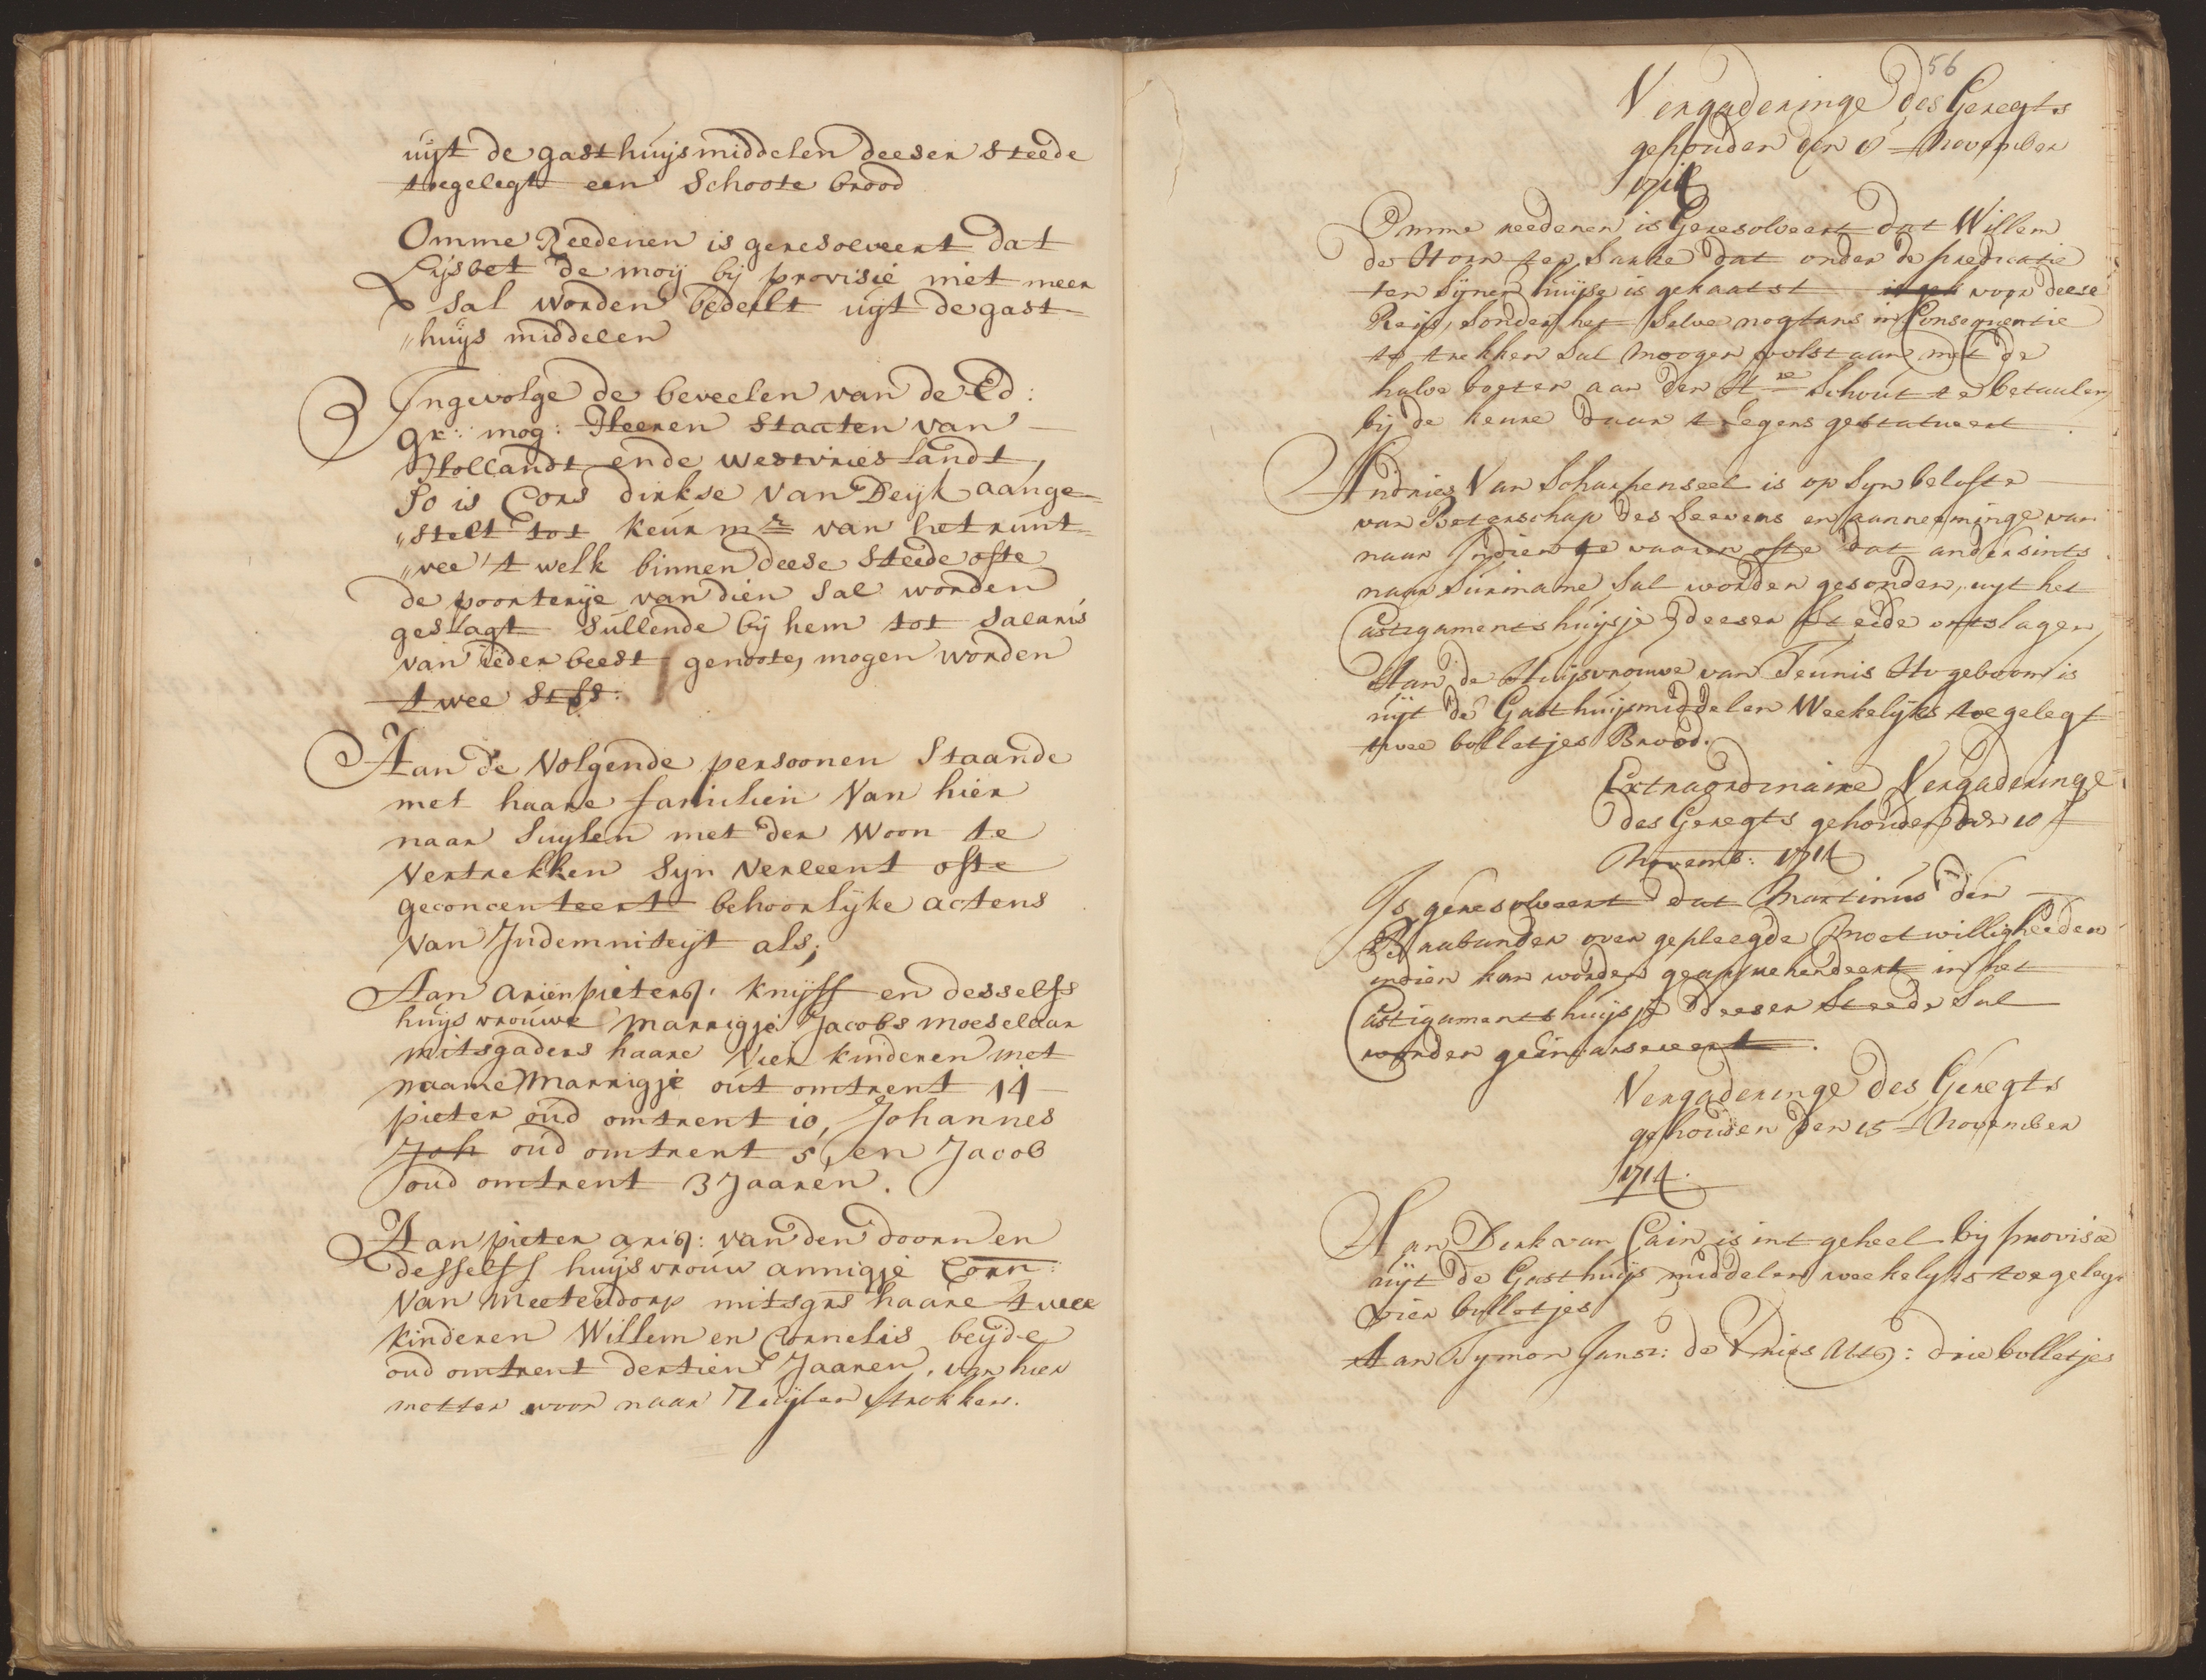 uijt de gasthuijsmiddelen deeser steede
toegelegt een Schoote brood
Omme Reedenen is geresolveert dat
Lijsbet de moij bij provisie niet meer
sal worden bedeelt uijt de gast-
„huijs middelen
Ingevolge de beveelen van de Ed:
gr: mog: Heeren Staaten van
Hollandt ende westvrieslandt,
So is Cors dirkse van Deijk aange-
„stelt tot keur mr van het runt-
„vee 't welk binnen deese Steede ofte
de poorterije van dien sal worden
geslagt sullende bij hem tot salaris
van ieder beest genooten mogen worden
twee st:
Aan de volgende persoonen staande
met haare familien van hier
naar Suylen met der woon te
vertrekken syn verleent ofte
geconcenteert behoorlijke actens
van Indemniteijt als;
Aan arien pieters: knijff en desselfs
huijsvrouwe Marrigje Jacobs moeselaar
mitsgaders haare vier kinderen met
naame Marrigje out omtrent 14
pieter oud omtrent 10, Johannes
Joh oud omtrent 5, en Jacob
oud omtrent 3 Jaaren.
Aan pieter aris: van den doorn en
desselfs huijsvrouw annigje Corn:
van Meetendorp mitsgrs haare twee
kinderen Willem en Cornelis beijde
oud omtrent dertien Jaaren, van hier
metter woon naar Zuijlen strokken.
56
Vergaderinge des Geregts
gehouden den 8 November
1714
Omme reedenen is Geresolveert dat Willem
de Horn ter Sarke dat onder de predicatie
ten sijnen huijse is gekaatst is gek voor deese
Reijs, sonder het selve nogtans in Consequentie
te trekken sal moogen volstaan met de
halve boeten aan den Hre Schout te betaalen
bij de keure daar tegens gestatueert
Andries Van Scharpenseel is op syn belofte
van Beterschap des Leevens en aanneeminge van
naar Indien te vaaren ofte dat andersints
naar Suriname sal worden gesonden, uyt het
Castigamentshuijsje deeser Steede ontslagen,
Aan de Huijsvrouwe van Teunis Hogeboom is
uijt de Gasthuijsmiddelen Weekelijks toegelegt
twee bolletjes Brood.
Extraordinaire Vergaderinge
des Geregts gehouden den 10
Novemb: 1714
Is geresolveert dat Martinus den
Brabander over gepleegde Moetwilligheeden
indien kan worden geapprehendeert in het
Castigamentshuijsje deeser Steede sal
worden geincarsereert.
Vergaderinge des Geregts
gehouden den 15 November
1714.
Aan Dirk van Cain is int geheel bij provisie
uijt de Gasthuijs middelen weekelyks toegelegt
vier bolletjes
Aan Tymon Jansz: de Vries Alts: drie bolletjes